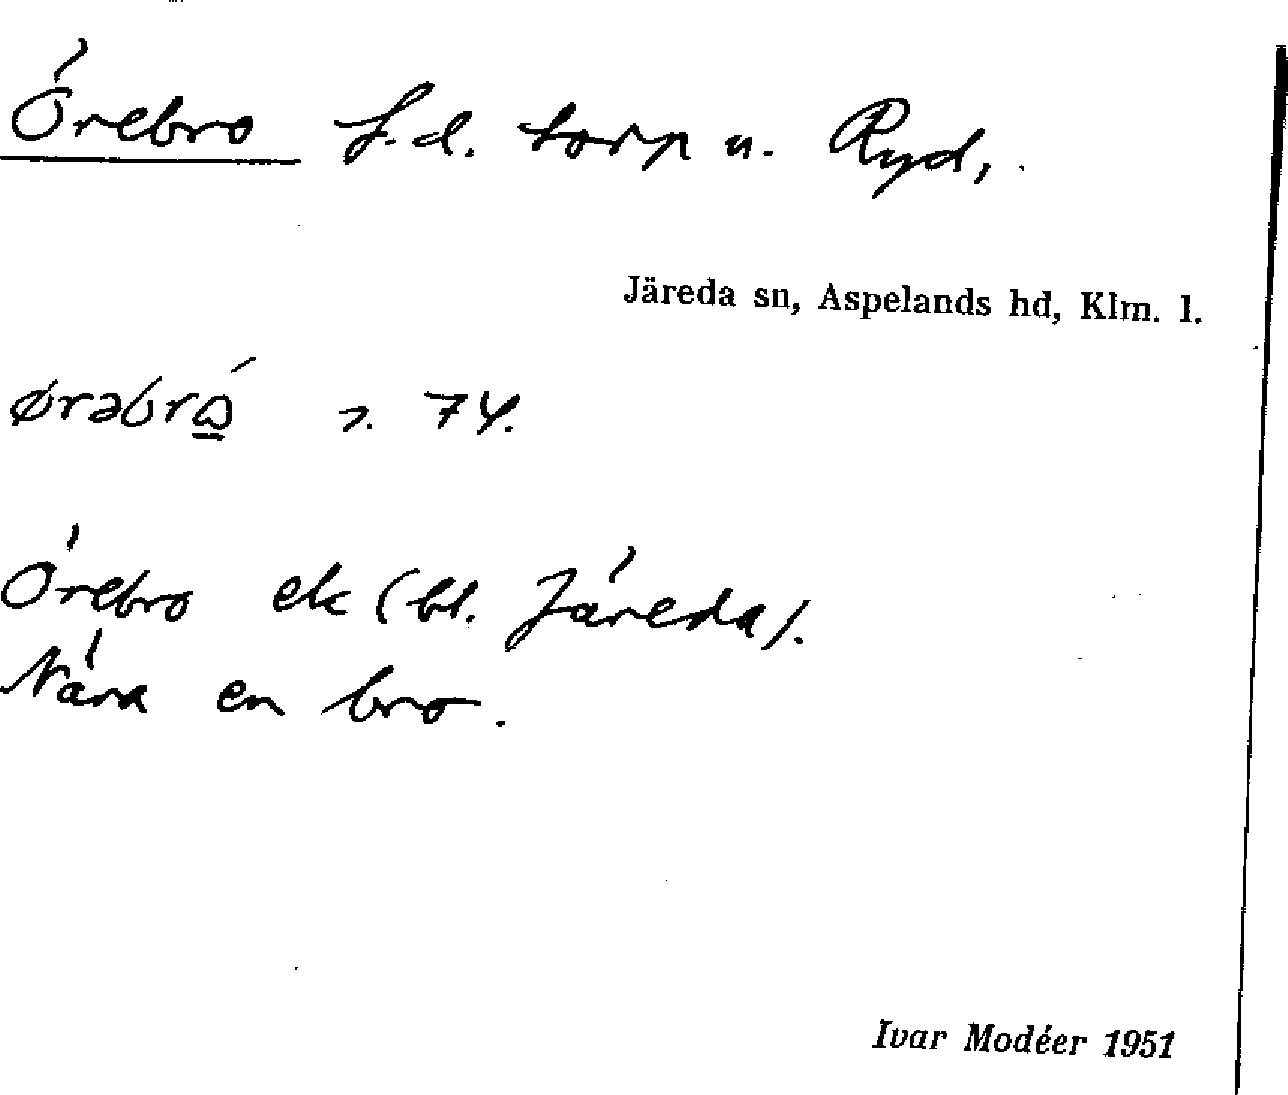 Örebro f.d. torp u. Ryd,
Järeda sn, Aspelands hd, Klm. l.
ørabrώ̲ 74.
Örebro ek (bl. Järeda).
Nära en bro.
Ivar Modéer 1951